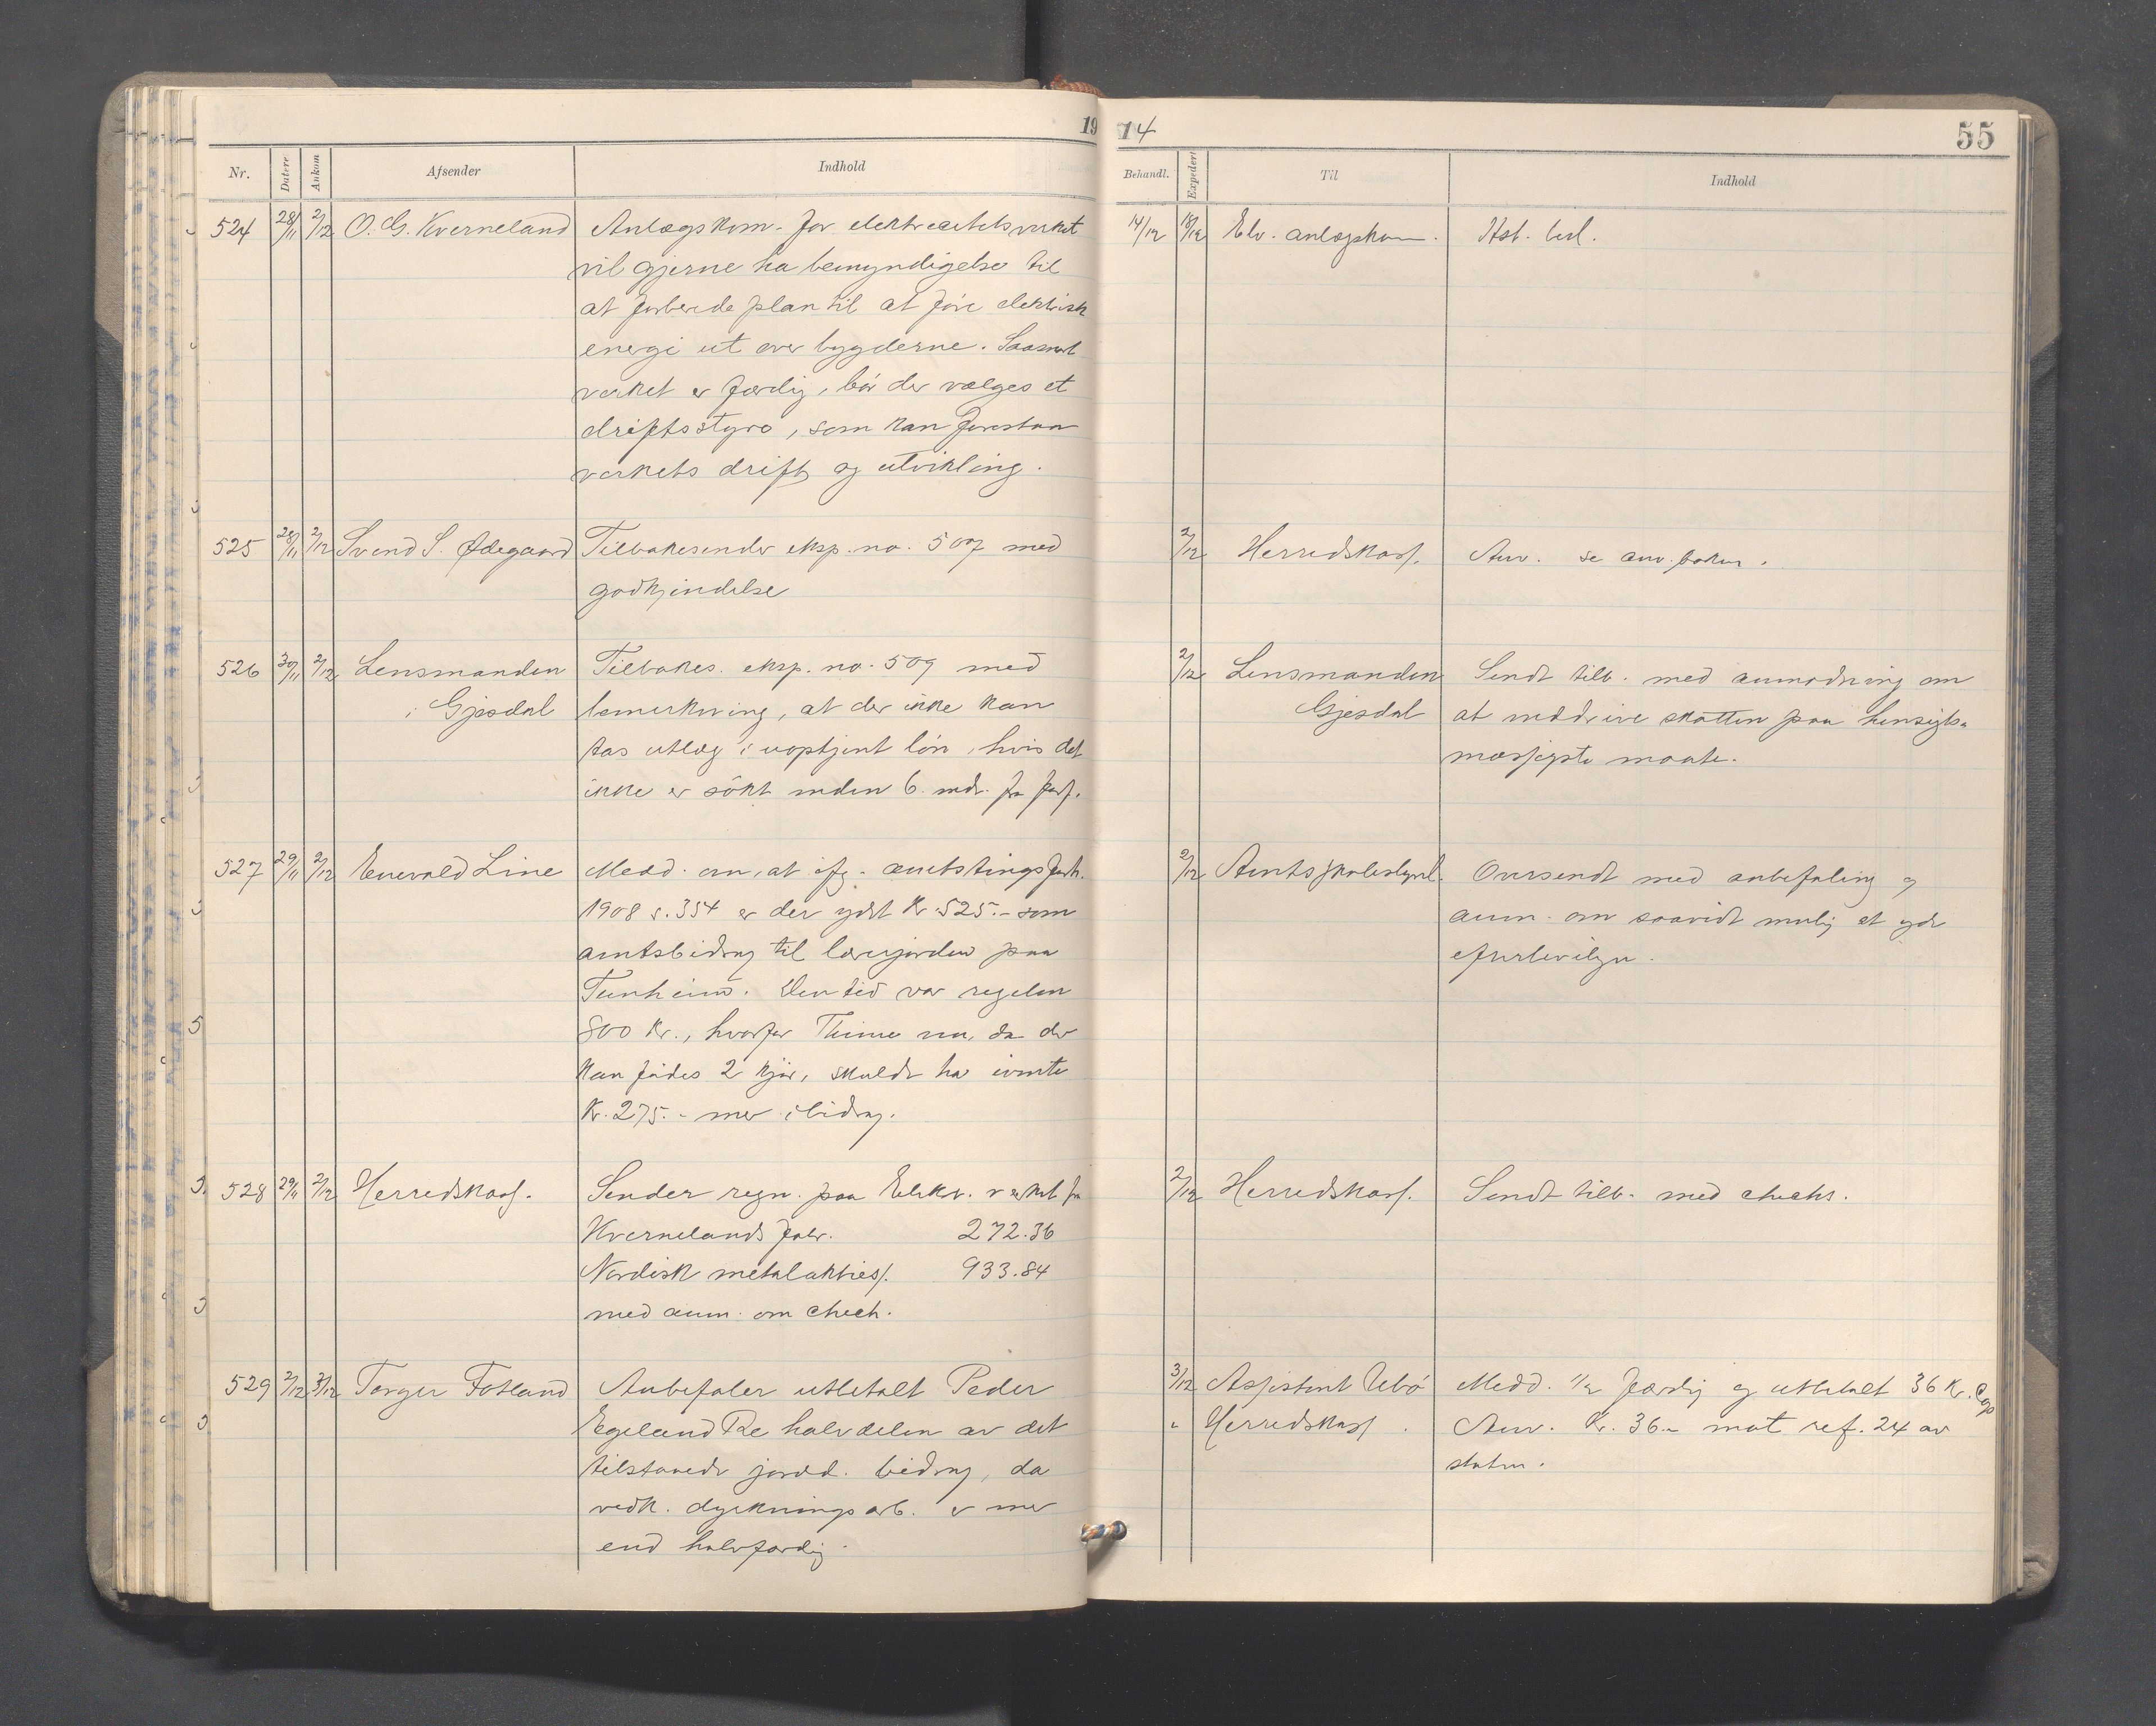 19 14
55
Nr. Datert Ankom Afsender Indhold
Behandl. Expedert Til Indhold
524 28/11 2/12 O. G. Kverneland Anlægskom. for elektricitetsverket
vil gjerne ha bemyndigelse til
at forberede plan til at före elektrisk
energi ut over bygderne. Saasnart
verket er færdig, bör der vælges et
driftsstyre, som kan forestaa
verkets drift og utvikling.
14/12 18/12 Elv. anlægskom. Hst. besl.
525 28/11 2/12 Svend S. Ødegaard Tilbakesender eksp. no. 507 med
godkjendelse
2/12 Herredskass. Anv. se anv. boken.
526 30/11 2/12 Lensmanden
i Gjesdal
Tilbakes. eksp. no. 509 med
bemerkning, at der ikke kan
tas utlæg i uoptjent lön, hvis det
ikke er sökt inden 6 mdr. fra forf.
2/12 Lensmanden
Gjesdal
Sendt tilb. med anmodning om
at inddrive skatten paa hensigts-
mæssigste maate.
527 29/11 2/12 Enevald Line Medd. om, at ifg. amtstingsforh.
1908 s. 354 er der ydet Kr. 525.- som
amtsbidrag til lærerjorden paa
Tunheim. Den tid var regelen
800 Kr., hvorfor Thime nu, da der
kan födes 2 kjör, skulde ha
Kr. 275.- mer i bidrag.
2/12 Amtsskolestyret. Oversendt med anbefaling og
anm. om saavidt mulig at yde
efterbevilgn.
528 29/11 2/12 Herredskass. Sender regn. paa Elekv. verket fra
Kvernelands fabr. 272.36
Nordisk metalakties. 933.84
med anm. om check.
2/12 Herredskass. Sendt tilb. med checks.
529 2/12 3/12 Torger Fotland Anbefaler utbetalt Peder
Egeland Re halvdelen av det
tilstaaede jordd. bidrag, da
vedk. dyrkningsarb. er mer
end halvfærdig.
3/12 Assistent Uebö Medd. 1/2 færdig og utbetalt 36 Kr. Cop
" Herredskass. Anv. Kr. 36.- mot ref. 24 av
staten.